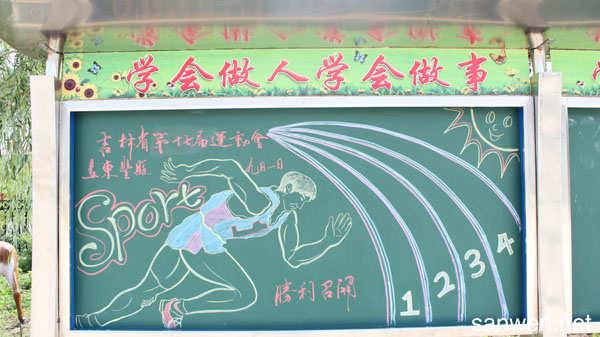 学会做人学会做事
吉林省第十七届運動會
東豐縣 九月一日
Sport
勝利召開
1 2 3 4
sanwen.net